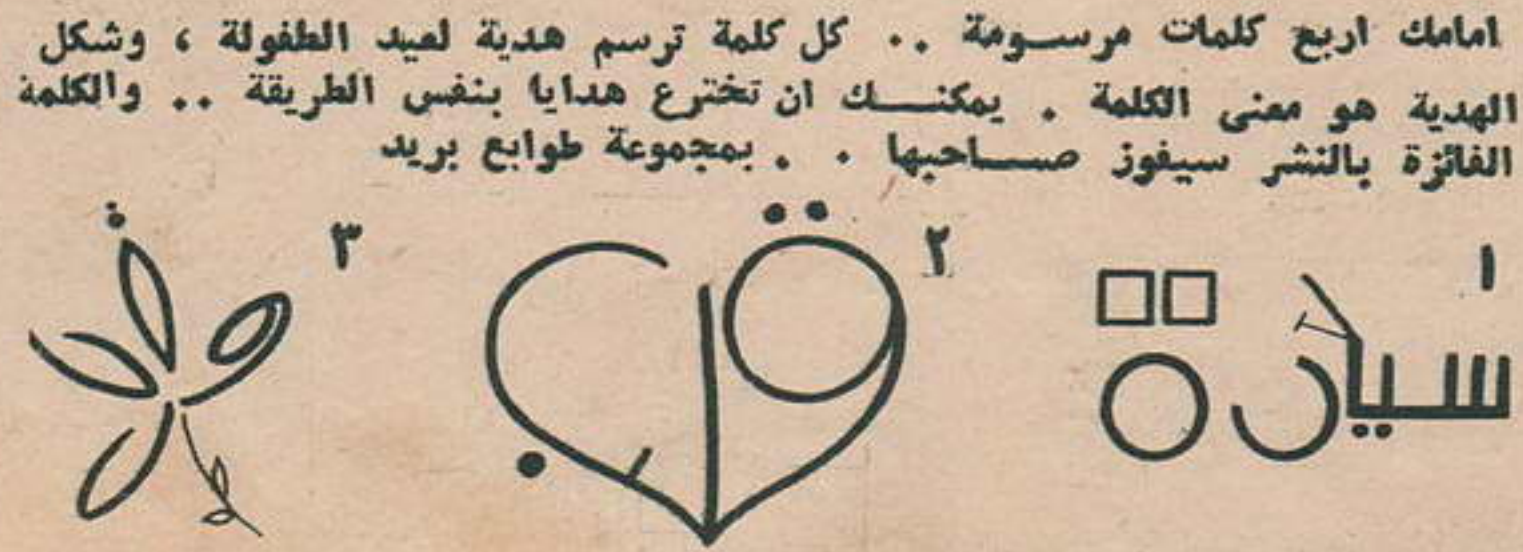 امامك اربع كلمات مرسومة .. كل كلمة ترسم هدية لعيد الطفولة ، وشكل
الهدية هو معنى الكلمة . يمكنك ان تخترع هدايا بنفس الطريقة .. والكلمة
الفائزة بالنشر سيفوز صاحبها . . بمجموعة طوابع بريد
١
سيارة
٢
قلب
٣